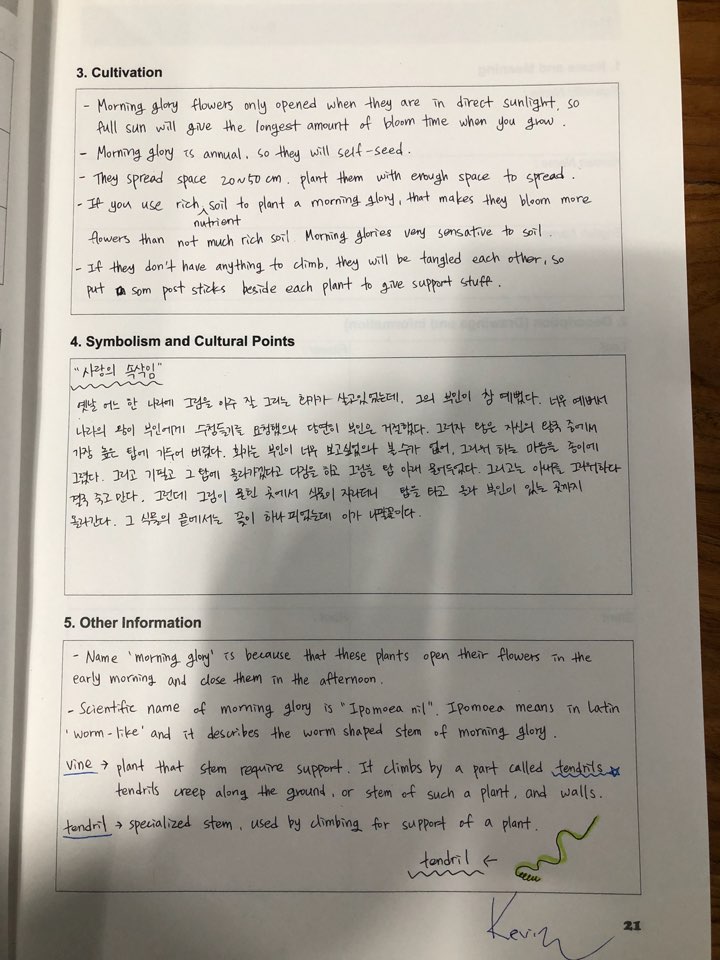 3. Cultivation
- Morning glory flowers only opened when they are in direct sunlight, so
full sun will give the longest amount of bloom time when you grow.
- Morning glory is annual, so they will self-seed.
- They spread space 20~50 cm. plant them with enough space to spread.
- If you use rich soil to plant a morning glory, that makes they bloom more
nutrient
flowers than not much rich soil. Morning glories very sensative to soil.
- If they don't have anything to climb, they will be tangled each other, so
put som post sticks beside each plant to give support stuff.
4. Symbolism and Cultural Points
"사랑의 속삭임"
옛날 어느 한 나라에 그림을 아주 잘 그리는 화가가 살고있었는데, 그의 부인이 참 예뻤다. 너무 예뻐서
나라의 왕이 부인에게 수청들기를 요청했으나 당연히 부인은 거절했다. 그러자 왕은 자신의 왕국 중에서
가장 높은 탑에 가두어 버렸다. 화가는 부인이 너무 보고싶었으나 볼 수가 없어, 그리워 하는 마음을 종이에
그렸다. 그리고 기필코 그 탑에 올라가겠다고 다짐을 하고 그림을 탑 아래 묻어두었다. 그리고는 아내를 그리워하다
결국 죽고 만다. 그런데 그림이 묻힌 곳에서 식물이 자라더니 탑을 타고 올라 부인이 있는 곳까지
올라간다. 그 식물의 끝에서는 꽃이 하나 피었는데 이가 나팔꽃이다.
5. Other Information
- Name 'morning glory' is because that these plants open their flowers in the
early morning and close them in the afternoon.
- Scientific name of morning glory is "Ipomoea nil". Ipomoea means in Latin
'worm-like' and it describes the worm shaped stem of morning glory.
vine → plant that stem require support. It climbs by a part called tendrils
tendrils creep along the ground, or stem of such a plant, and walls.
tendril → specialized stem, used by climbing for support of a plant.
tendril ←
Kevin
21